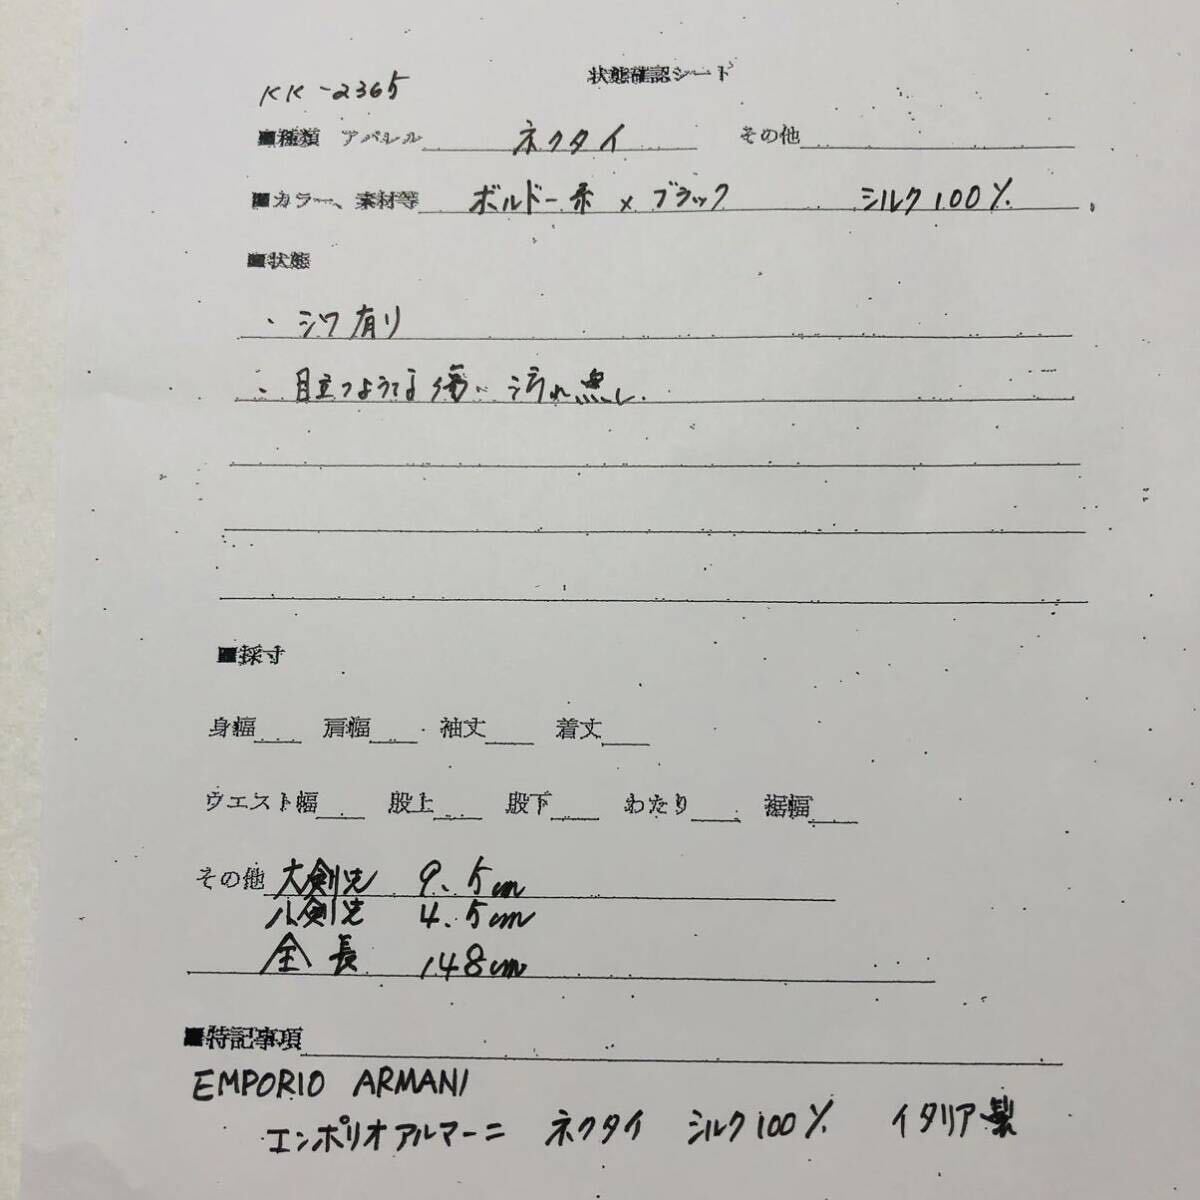 状態確認シート
KK-2365
■種類 アパレル ネクタイ その他
■カラー、素材等 ボルドー系×ブラック シルク100%
■状態
・シワ有り
・目立つような傷、汚れ無し.
■採寸
身幅 肩幅 袖丈 着丈
ウエスト幅 股上 股下 わたり 裾幅
その他 大剣先 9.5cm
小剣先 4.5cm
全長 148cm
■特記事項
EMPORIO ARMANI
エンポリオアルマーニ ネクタイ シルク100% イタリア製